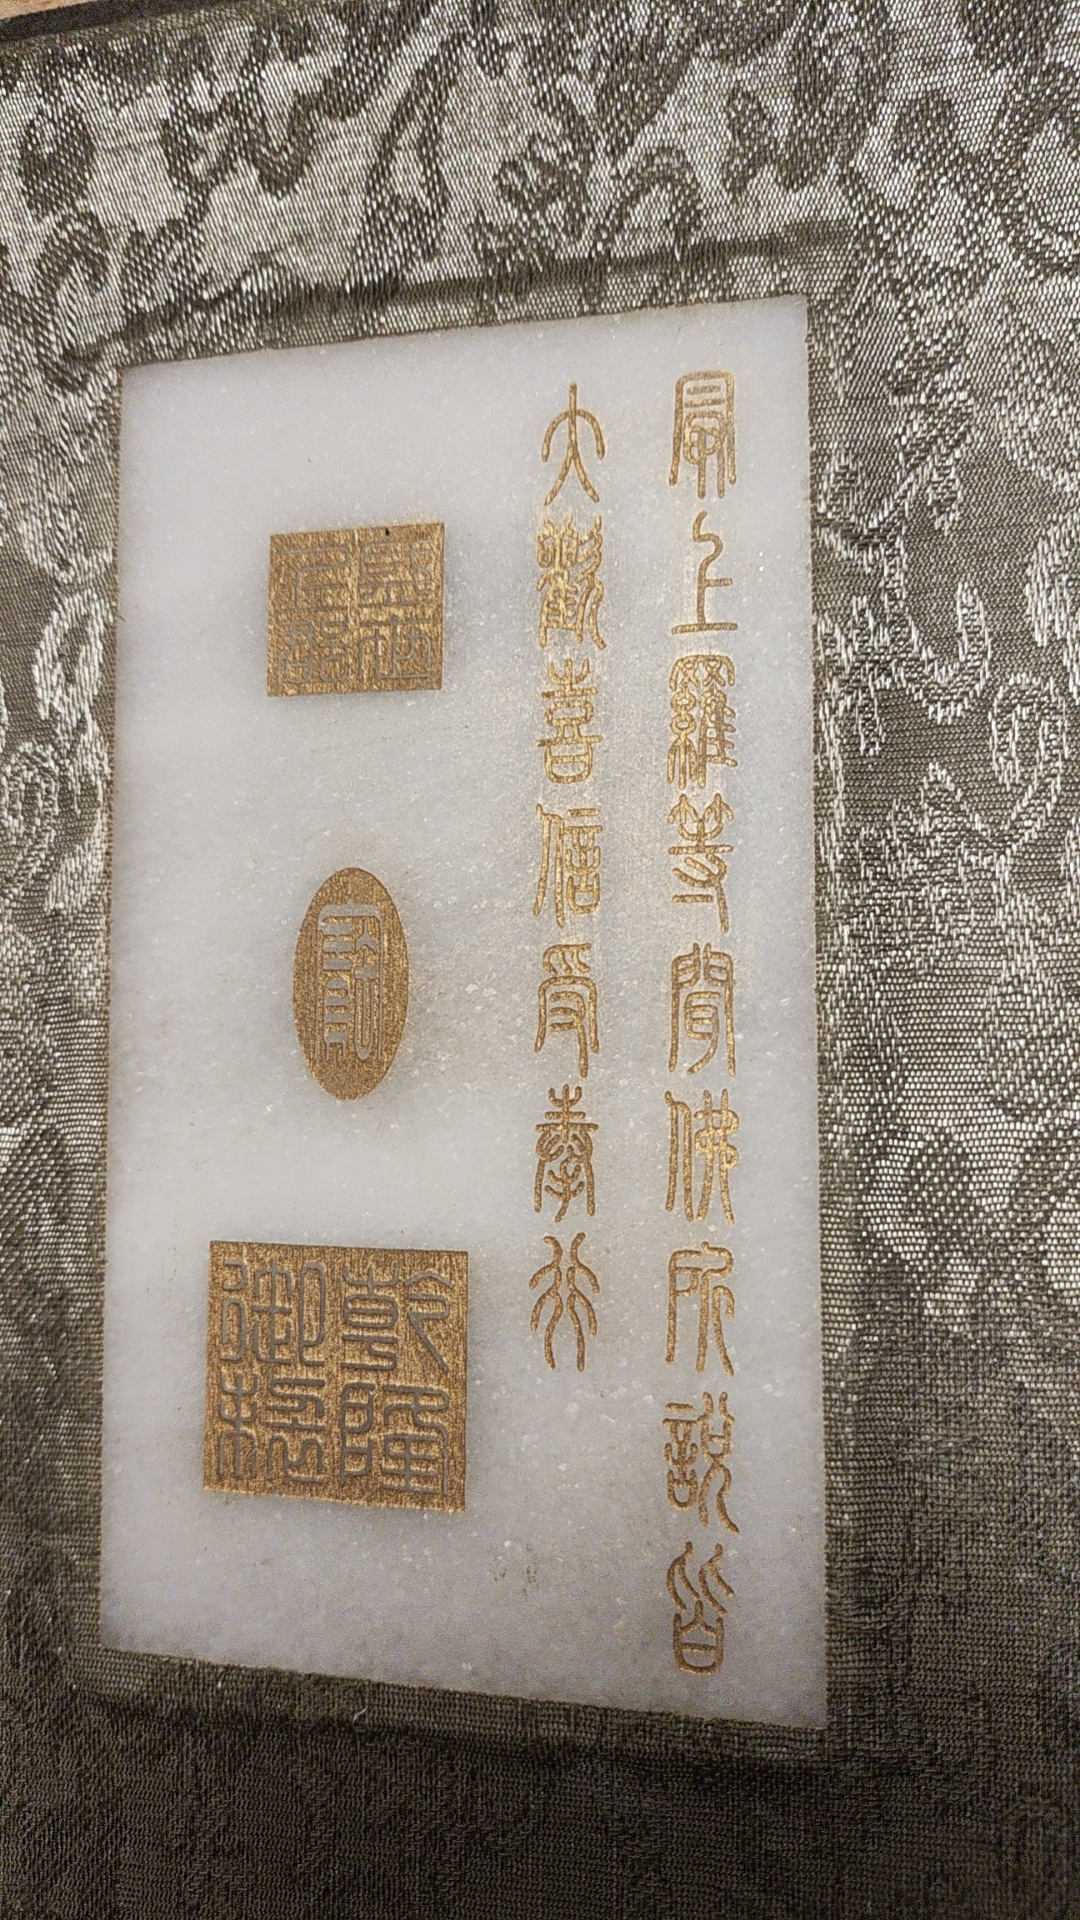 最上羅等聞佛所說皆
大歡喜信受奉行
乾隆
御